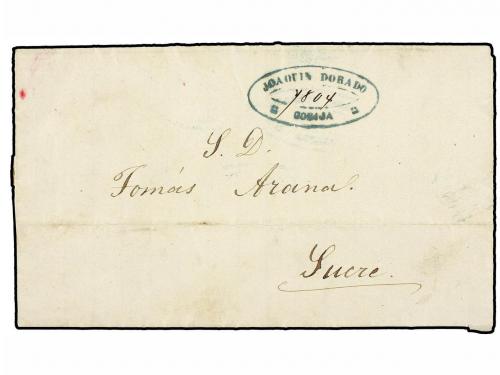 JOAQUIN DORADO
7804
COBIJA
S. D.
Tomás Arana.
Sucre.